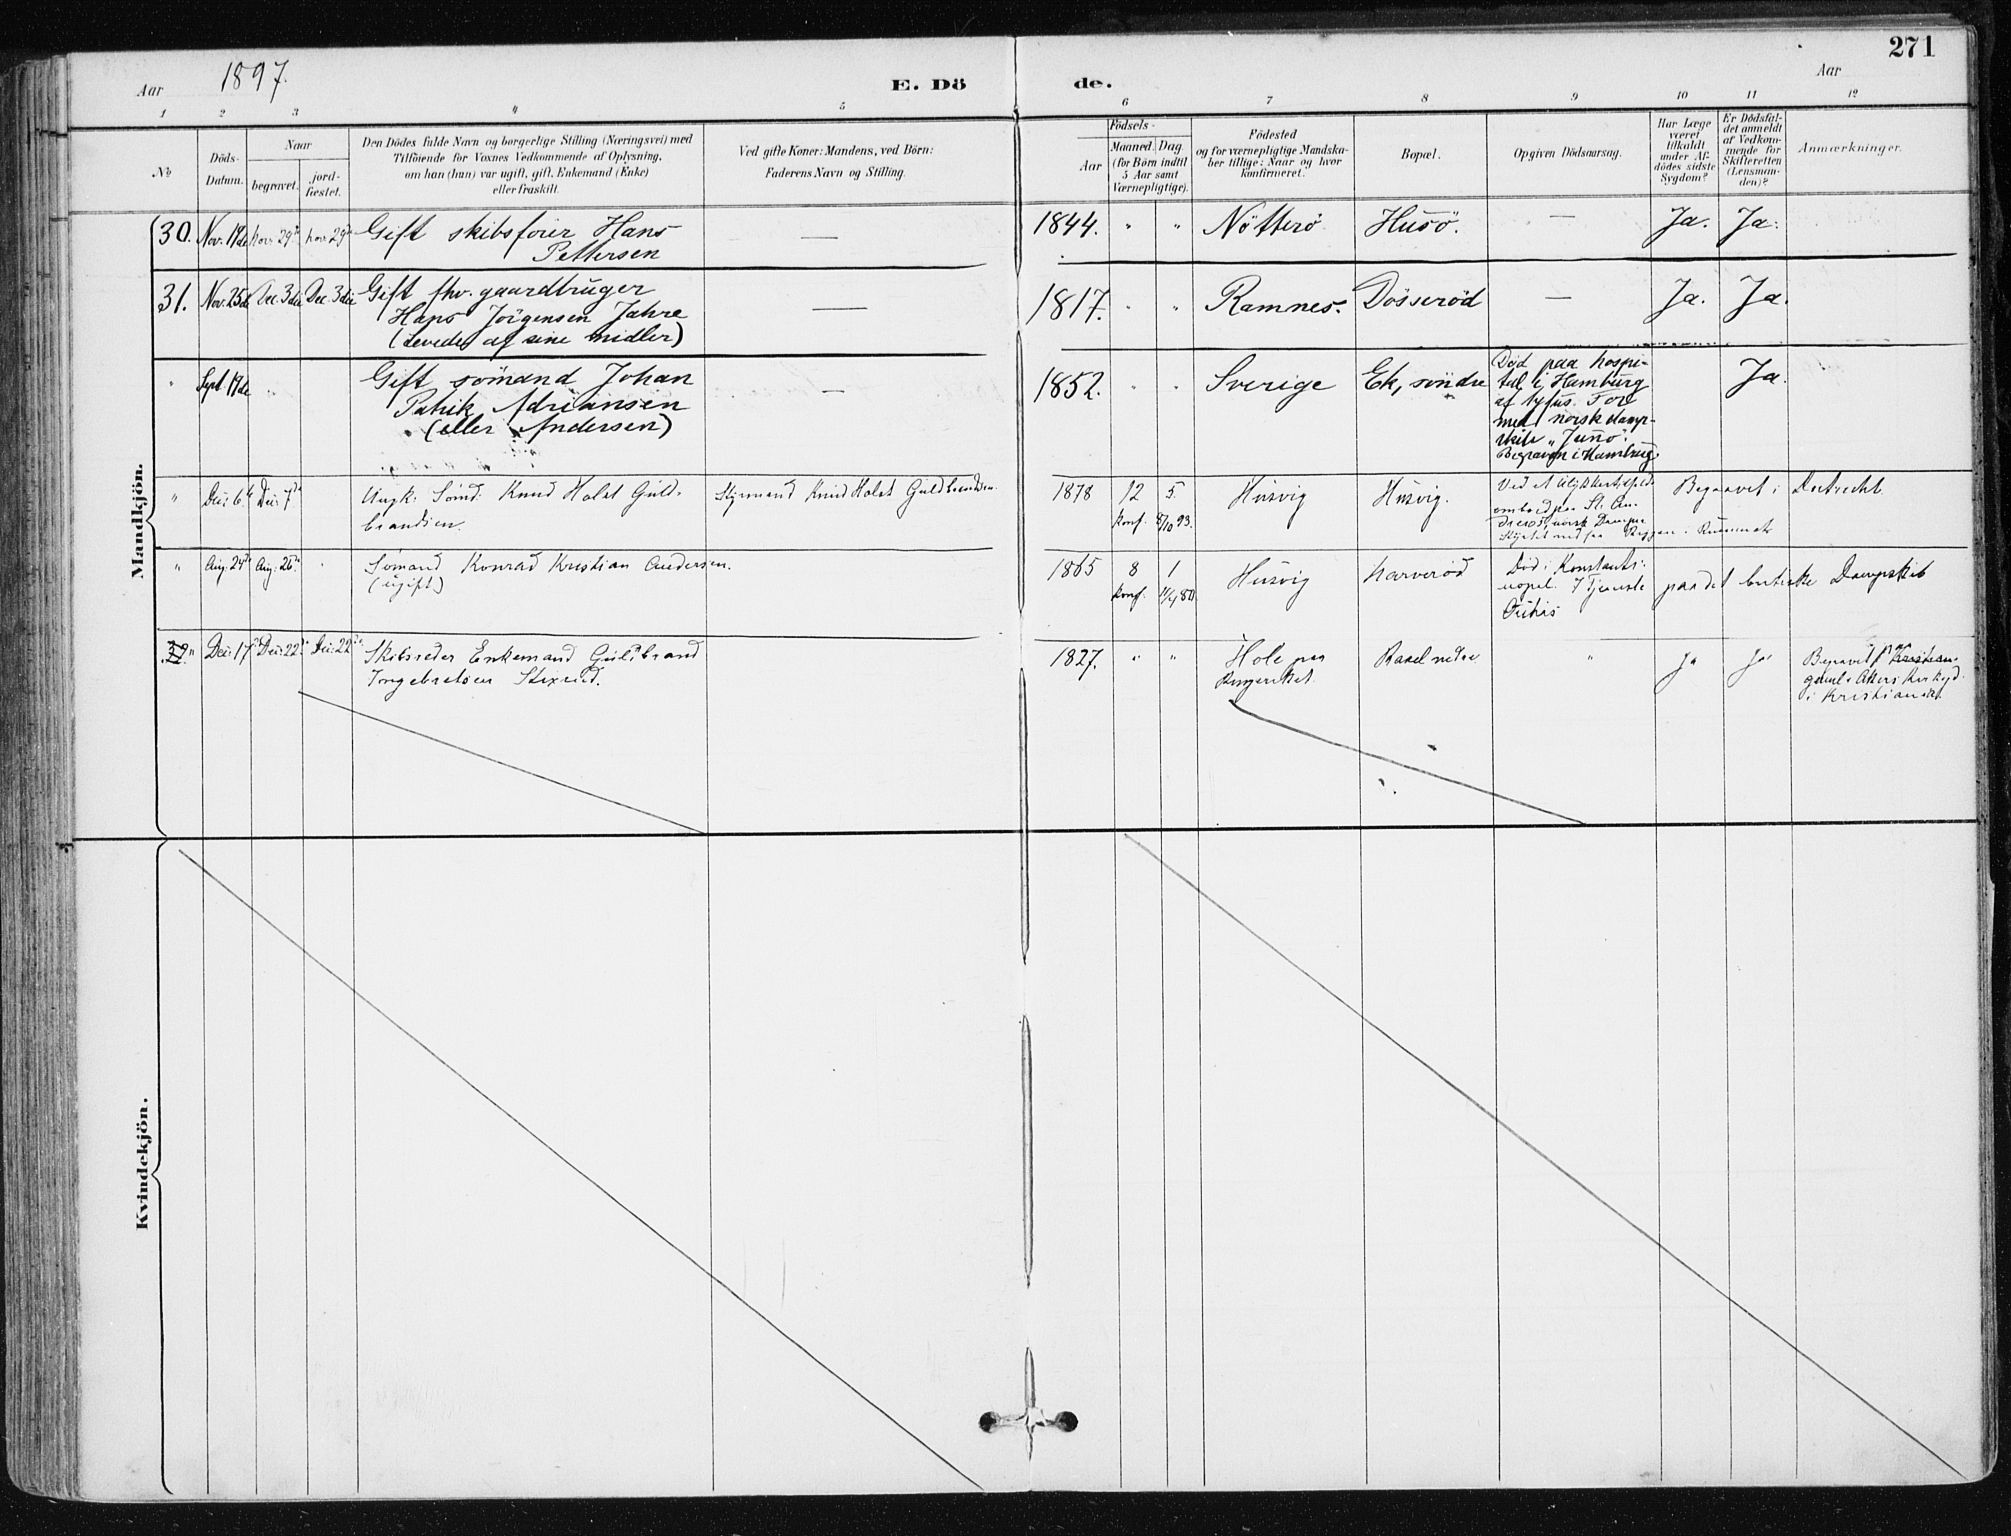 271
Aar 1897.
E. Dö
de.
Aar
1 2 3 4 5
6 7 8 9 10 11 12
No
Döds-
Datum.
Naar
begravet.
jord-
fæstet.
Den Dödes fulde Navn og borgerlige Stilling (Næringsvei) med
Tilföiende for Voxnes Vedkommende af Oplysning,
om han (hun) var ugift, gift, Enkemand (Enke)
eller fraskilt.
Ved gifte Koner: Mandens, ved Börn:
Faderens Navn og Stilling.
Födsels-
Aar
Maaned. Dag.
(for Börn indtil
5 Aar samt
Værnepligtige).
Födested
og for værnepligtige Mandska-
ber tillige: Naar og hvor
konfirmeret.
Bopæl.
Opgiven Dödsaarsag.
Har Læge
været
tilkaldt
under Af-
dödes sidste
Sygdom?
Er Dödsfal-
det anmeldt
af Vedkom-
mende for
Skifteretten
(Lensman-
den)?
Anmærkninger.
Mandkjön.
30. Nov. 19de Nov. 29de Nov. 29de Gift skibsfører Hans
Pettersen
—
1844. " " Nötterö Husö. — Ja. Ja.
31. Nov. 25de Dec. 3die Dec. 3die Gift fhv. gaardbruger
Hans Jörgensen Jahre
(Levede af sine midler)
—
1817. " " Ramnes. Dösseröd — Ja. Ja.
" Sept. 19de " Gift sömand Johan
Patrik Adriansen
(eller Andersen)
—
1852. " " Sverige Ek, söndre
Död paa hospi-
tal i Hamburg
af tyfus. For
med norsk damp-
skib "Juno".
Begraven i Hamburg.
Ja.
" Dec: 6te Dec: 7de Ungk: Sömd: Knud Holst Guld-
brandsen.
Styrmand Knud Holst Guldbrandsen.
1878 12 5.
Konf. 8/10 93.
Husvig Husvig.
Ved et Ulykkestilfælde
ombord paa St. An-
dreas, norsk Damper
Begravet i Dortrecht
" Aug: 24de Aug: 26de " Sömand Konrad Kristian Andersen.
(ugift)
1865 8 1
Konf. 11/4 80.
Husvig Harveröd
Död i Konstanti-
nopel. I Tjeneste paa det britiske Dampskib
32. " Dec: 17de Dec: 22de Dec: 22de Skibsreder Enkemand Guldbrand
Ingebretsen Stixrud.
1827. " " Hole paa
Ringeriket.
Basel nedre " Ja Ja
Begravet paa Kristian-
gamle Akers Kirkegd.
i Kristiania.
Kvindekjön.